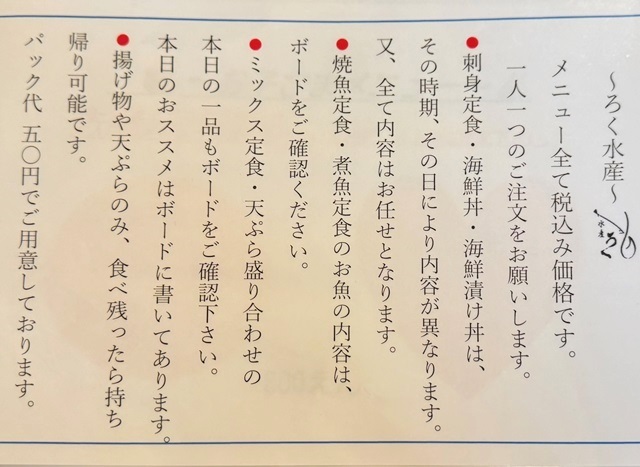 ～ろく水産～
ろく
水産
メニュー全て税込み価格です。
一人一つのご注文をお願いします。
●刺身定食・海鮮丼・海鮮漬け丼は、
その時期、その日により内容が異なります。
又、全て内容はお任せとなります。
●焼魚定食・煮魚定食のお魚の内容は、
ボードをご確認ください。
●ミックス定食・天ぷら盛り合わせの
本日の一品もボードをご確認下さい。
本日のおススメはボードに書いてあります。
●揚げ物や天ぷらのみ、食べ残ったら持ち
帰り可能です。
パック代 五〇円でご用意しております。